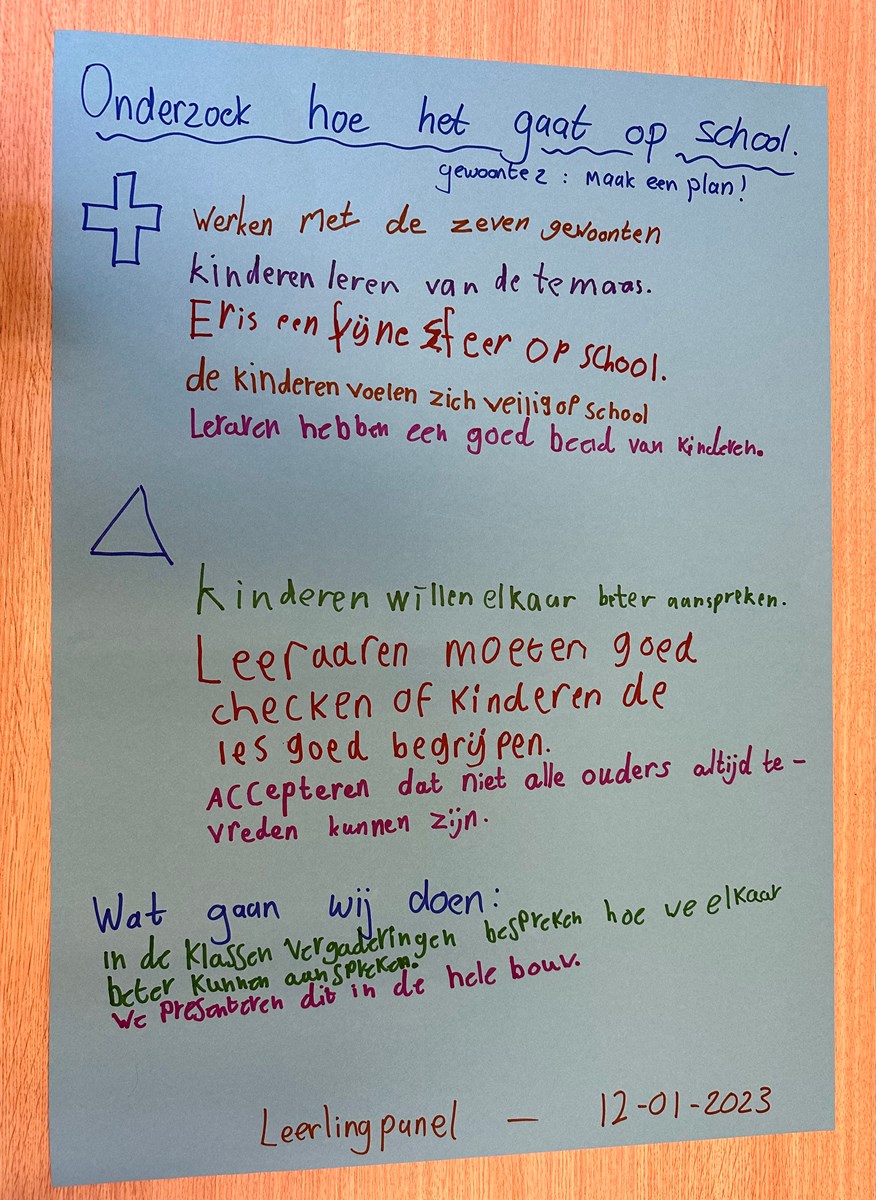 Onderzoek hoe het gaat op school.
gewoonte 2 : Maak een plan!
werken met de zeven gewoonten
kinderen leren van de temaas.
Er is een fijne sfeer op school.
de kinderen voelen zich veilig op school
Leraren hebben een goed beeld van kinderen.
kinderen willen elkaar beter aanspreken.
Leeraaren moeten goed
checken of kinderen de
les goed begrijpen.
ACCepteren dat niet alle ouders altijd te-
vreden kunnen zijn.
Wat gaan wij doen:
in de klassen vergaderingen bespreken hoe we elkaar
beter kunnen aanspreken.
We presenteren dit in de hele bouw.
Leerlingpanel - 12-01-2023